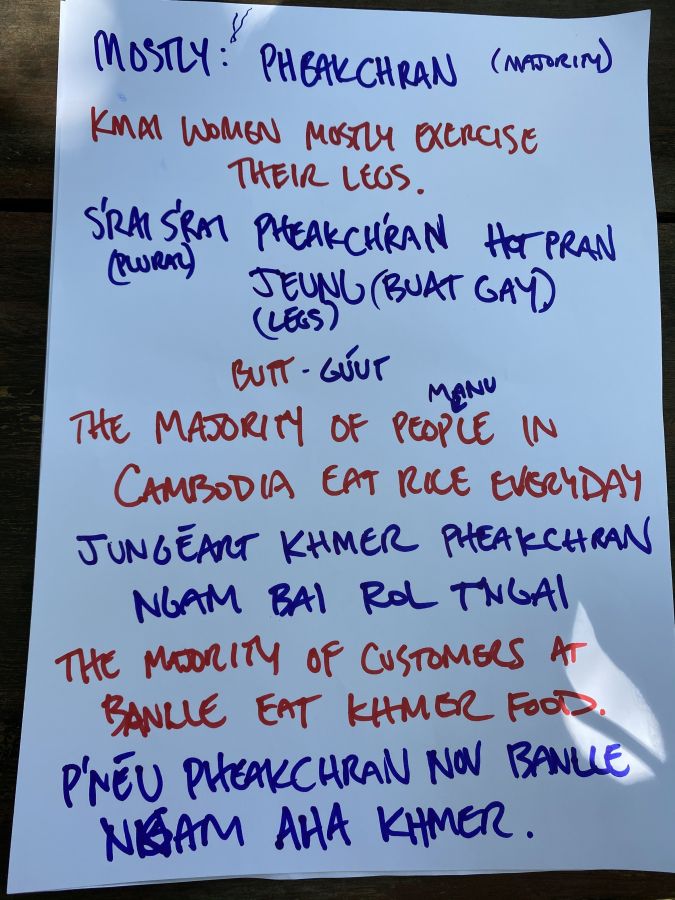 MOSTLY: PHEAKCHRAN (MAJORITY)
KMAI WOMEN MOSTLY EXERCISE
THEIR LEGS.
S'RAI S'RAI PHEAKCH'RAN HOT PRAN
(PLURAL) JEUNG (BUAT GAY)
(LEGS)
BUTT - GÚUT
MANU
THE MAJORITY OF PEOPLE IN
CAMBODIA EAT RICE EVERYDAY
JUNGĒART KHMER PHEAKCHRAN
NGAM BAI ROL T'NGAI
THE MAJORITY OF CUSTOMERS AT
BANLLE EAT KHMER FOOD.
P'NĒU PHEAKCHRAN NOV BANLLE
NGAM AHA KHMER.